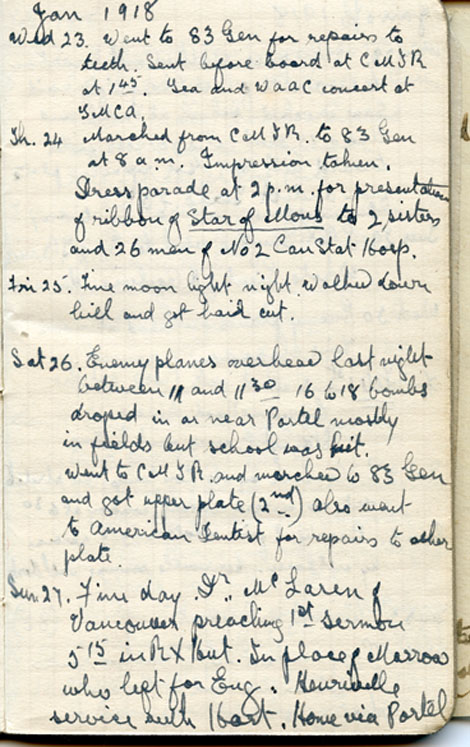 Jan 1918
Wed 23. Went to 83 Gen for repairs to
teeth. Sent before board at C M F R
at 1 45. Tea and WAAC concert at
YMCA.
Th. 24 Marched from C M F R. to 83 Gen
at 8 a.m. Impression taken.
Dress parade at 2 p.m. for presentation
of ribbon of Star of Mons to 2 sisters
and 26 men of No 2 Can Stat Hosp.
Fri 25. Fine moon light night. Walked down
hill and got haid cut.
Sat 26. Enemy planes overhead last night
between 11 and 11 30 16 to 18 bombs
droped in or near Portel mostly
in fields but school was hit.
Went to C M F R. and marched to 83 Gen
and got upper plate (2nd) also went
to American Dentist for repairs to other
plate.
Sun. 27. Fine day. Dr. McLaren of
Vancouver preaching 1st sermon
5 15 in R X Hut. In place of Morrow
who left for Eng. Henriville
service with Hart. Home via Portel